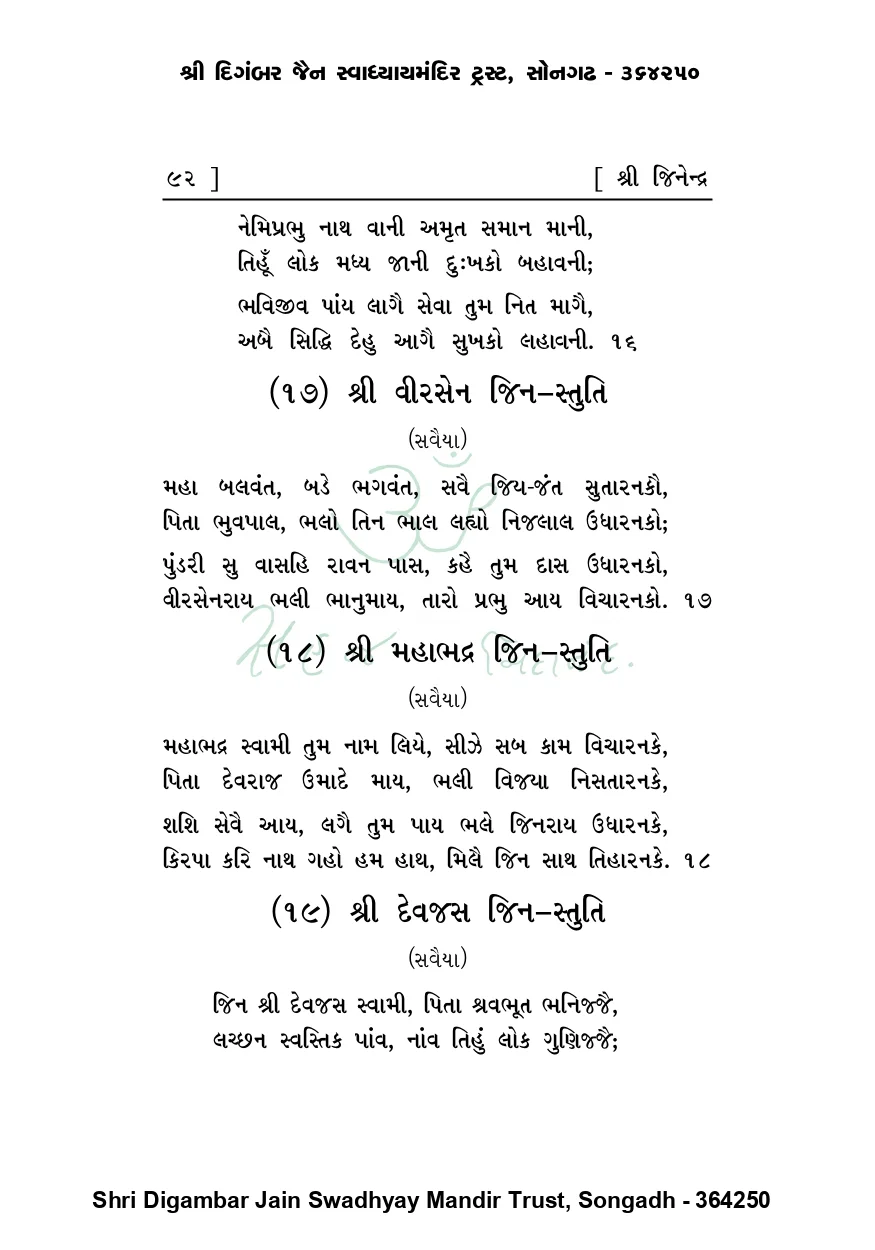 શ્રી દિગંબર જૈન સ્વાધ્યાયમંદિર ટ્રસ્ટ, સોનગઢ - ૩૬૪૨૫૦
૯૨ ] [ શ્રી જિનેન્દ્ર
નેમિપ્રભુ નાથ વાની અમૃત સમાન માની,
તિહૂઁ લોક મધ્ય જાની દુઃખકો બહાવની;
ભવિજીવ પાંય લાગૈ સેવા તુમ નિત માગૈ,
અબૈ સિદ્ધિ દેહુ આગૈ સુખકો લહાવની. ૧૬
(૧૭) શ્રી વીરસેન જિન–સ્તુતિ
(સવૈયા)
મહા બલવંત, બડે ભગવંત, સવૈ જિય-જંત સુતારનકૌ,
પિતા ભુવપાલ, ભલો તિન ભાલ લહ્યો નિજલાલ ઉધારનકો;
પુંડરી સુ વાસહિ રાવન પાસ, કહૈ તુમ દાસ ઉધારનકો,
વીરસેનરાય ભલી ભાનુમાય, તારો પ્રભુ આય વિચારનકો. ૧૭
(૧૮) શ્રી મહાભદ્ર જિન–સ્તુતિ
(સવૈયા)
મહાભદ્ર સ્વામી તુમ નામ લિયે, સીઝે સબ કામ વિચારનકે,
પિતા દેવરાજ ઉમાદે માય, ભલી વિજયા નિસતારનકે,
શશિ સેવૈ આય, લગૈ તુમ પાય ભલે જિનરાય ઉધારનકે,
કિરપા કરિ નાથ ગહો હમ હાથ, મિલૈ જિન સાથ તિહારનકે. ૧૮
(૧૯) શ્રી દેવજસ જિન–સ્તુતિ
(સવૈયા)
જિન શ્રી દેવજસ સ્વામી, પિતા શ્રવભૂત ભનિજ્જૈ,
લચ્છન સ્વસ્તિક પાંવ, નાંવ તિહું લોક ગુણિજ્જૈ;
Shri Digambar Jain Swadhyay Mandir Trust, Songadh - 364250